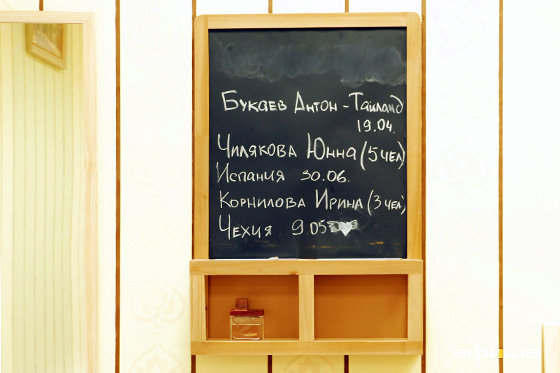 Букаев Антон - Тайланд
19.04.
Чилякова Юнна (5 чел)
Испания 30.06.
Корнилова Ирина (3 чел)
Чехия 9.05